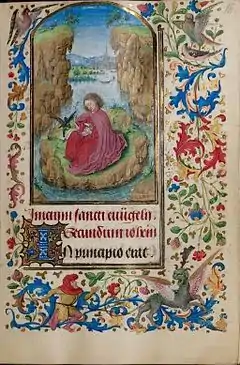 Inicium sancti euāgelii.
Secundum iohem
IN principio erat.